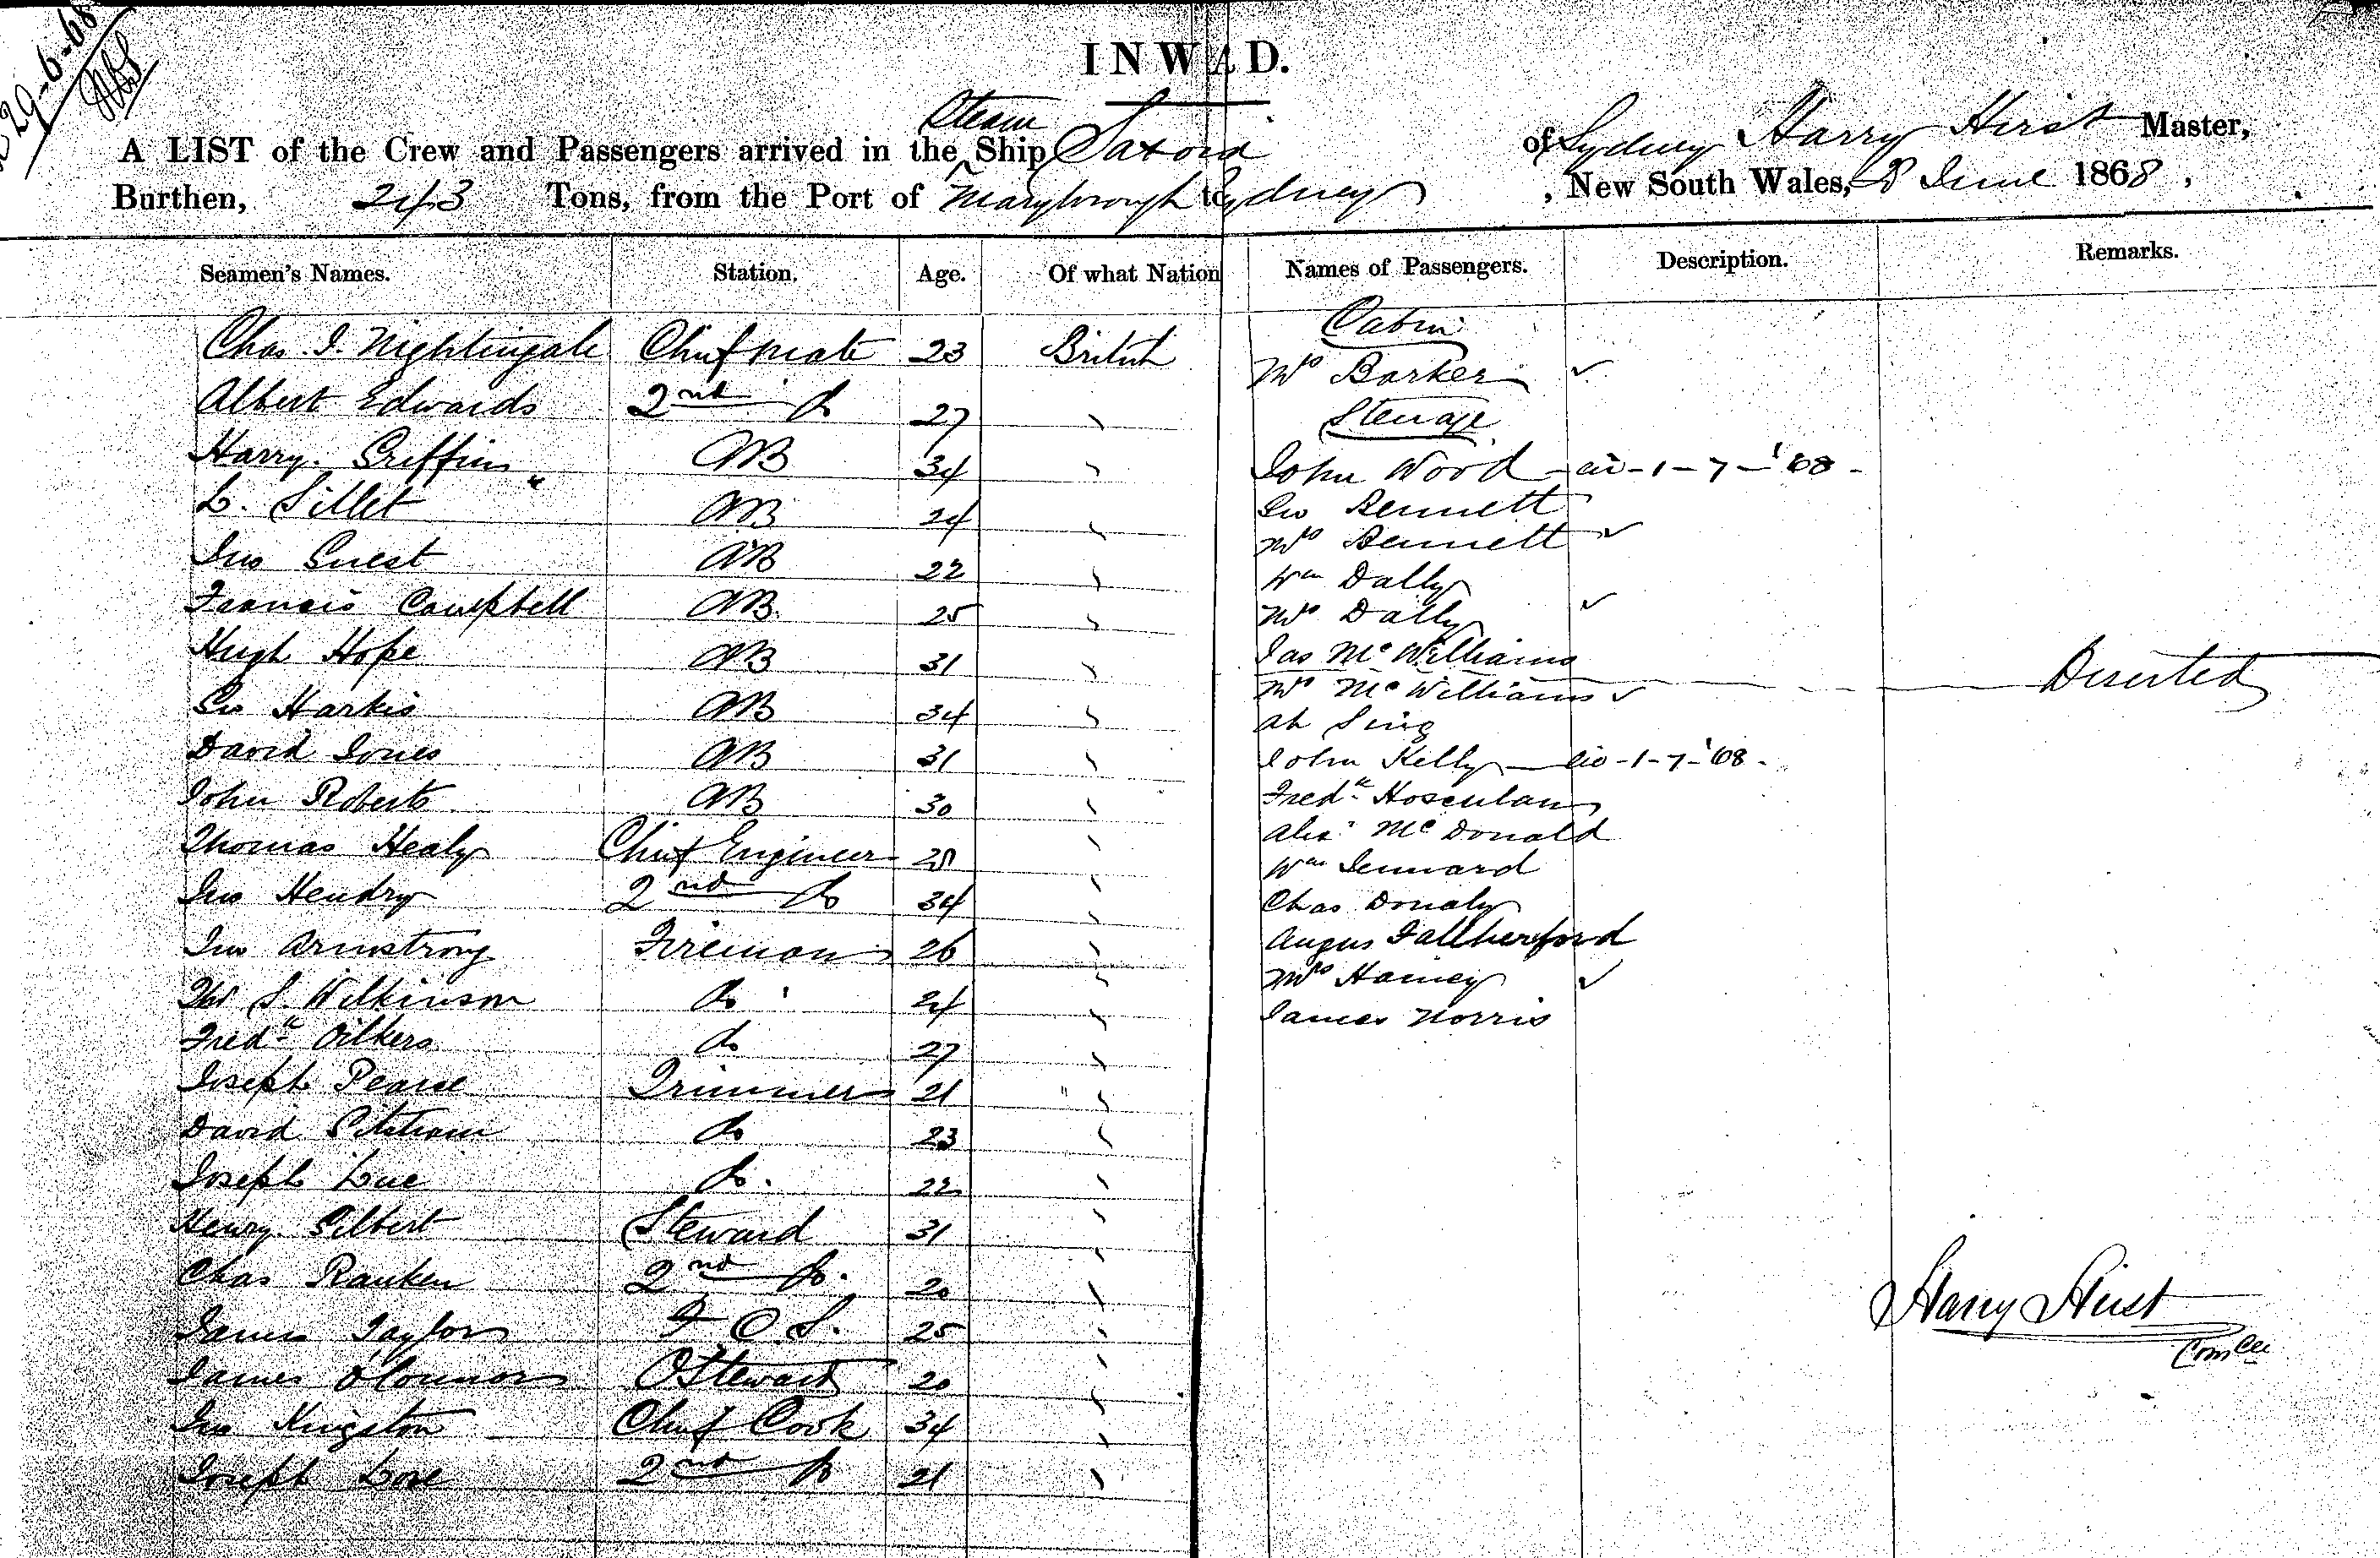 29-6-68
INWAD.
Steam
A LIST of the Crew and Passengers arrived in the Ship Saxonia of Sydney Harry Hirst Master,
Burthen, 243 Tons, from the Port of Maryborough to Sydney, New South Wales, 8 June 1868,
Seamen's Names. Station. Age. Of what Nation Names of Passengers. Description. Remarks.
Chas. I. Nightingale Chief mate 23 British
Albert Edwards 2nd Do 27 "
Harry Griffin AB 34 "
L. Sillet AB 24 "
Jno Guest AB 22 "
Francis Campbell AB 25 "
Hugh Hope AB 31 "
Geo Harkis AB 34 "
David Jones AB 31 "
John Roberts AB 30 "
Thomas Healy Chief Engineer 28 "
Jno Hendry 2nd Do 34 "
Jno Armstrong Fireman 26 "
S. Wilkinson Do 24 "
Fredk Oilkers Do 27 "
Joseph Pearse Trimmer 21 "
David Do 23 "
Joseph Luc Do. 22 "
Henry Gilbert Steward 31 "
Chas Ranken 2nd Do. 20 "
James Taylor F. C. S. 25 "
James O'Connor OSteward 20 "
Jno Kingston Chief Cook 34 "
Joseph Lose 2nd Do 21 "
Cabin
Mrs Barker ✓
Steerage
John Wood - 1-7-'08-
Geo Bennett
Mrs Bennett ✓
Wm Dally
Mrs Dally ✓
Jas McWilliams
Mrs McWilliams ✓ Deserted
Ah Sing
John Kelly - 1-7-'08-
Fredk
Alexr McDonald
Wm Lennard
Chas Donaly
Angus
Mrs Harney ✓
James Norris
Harry Hirst